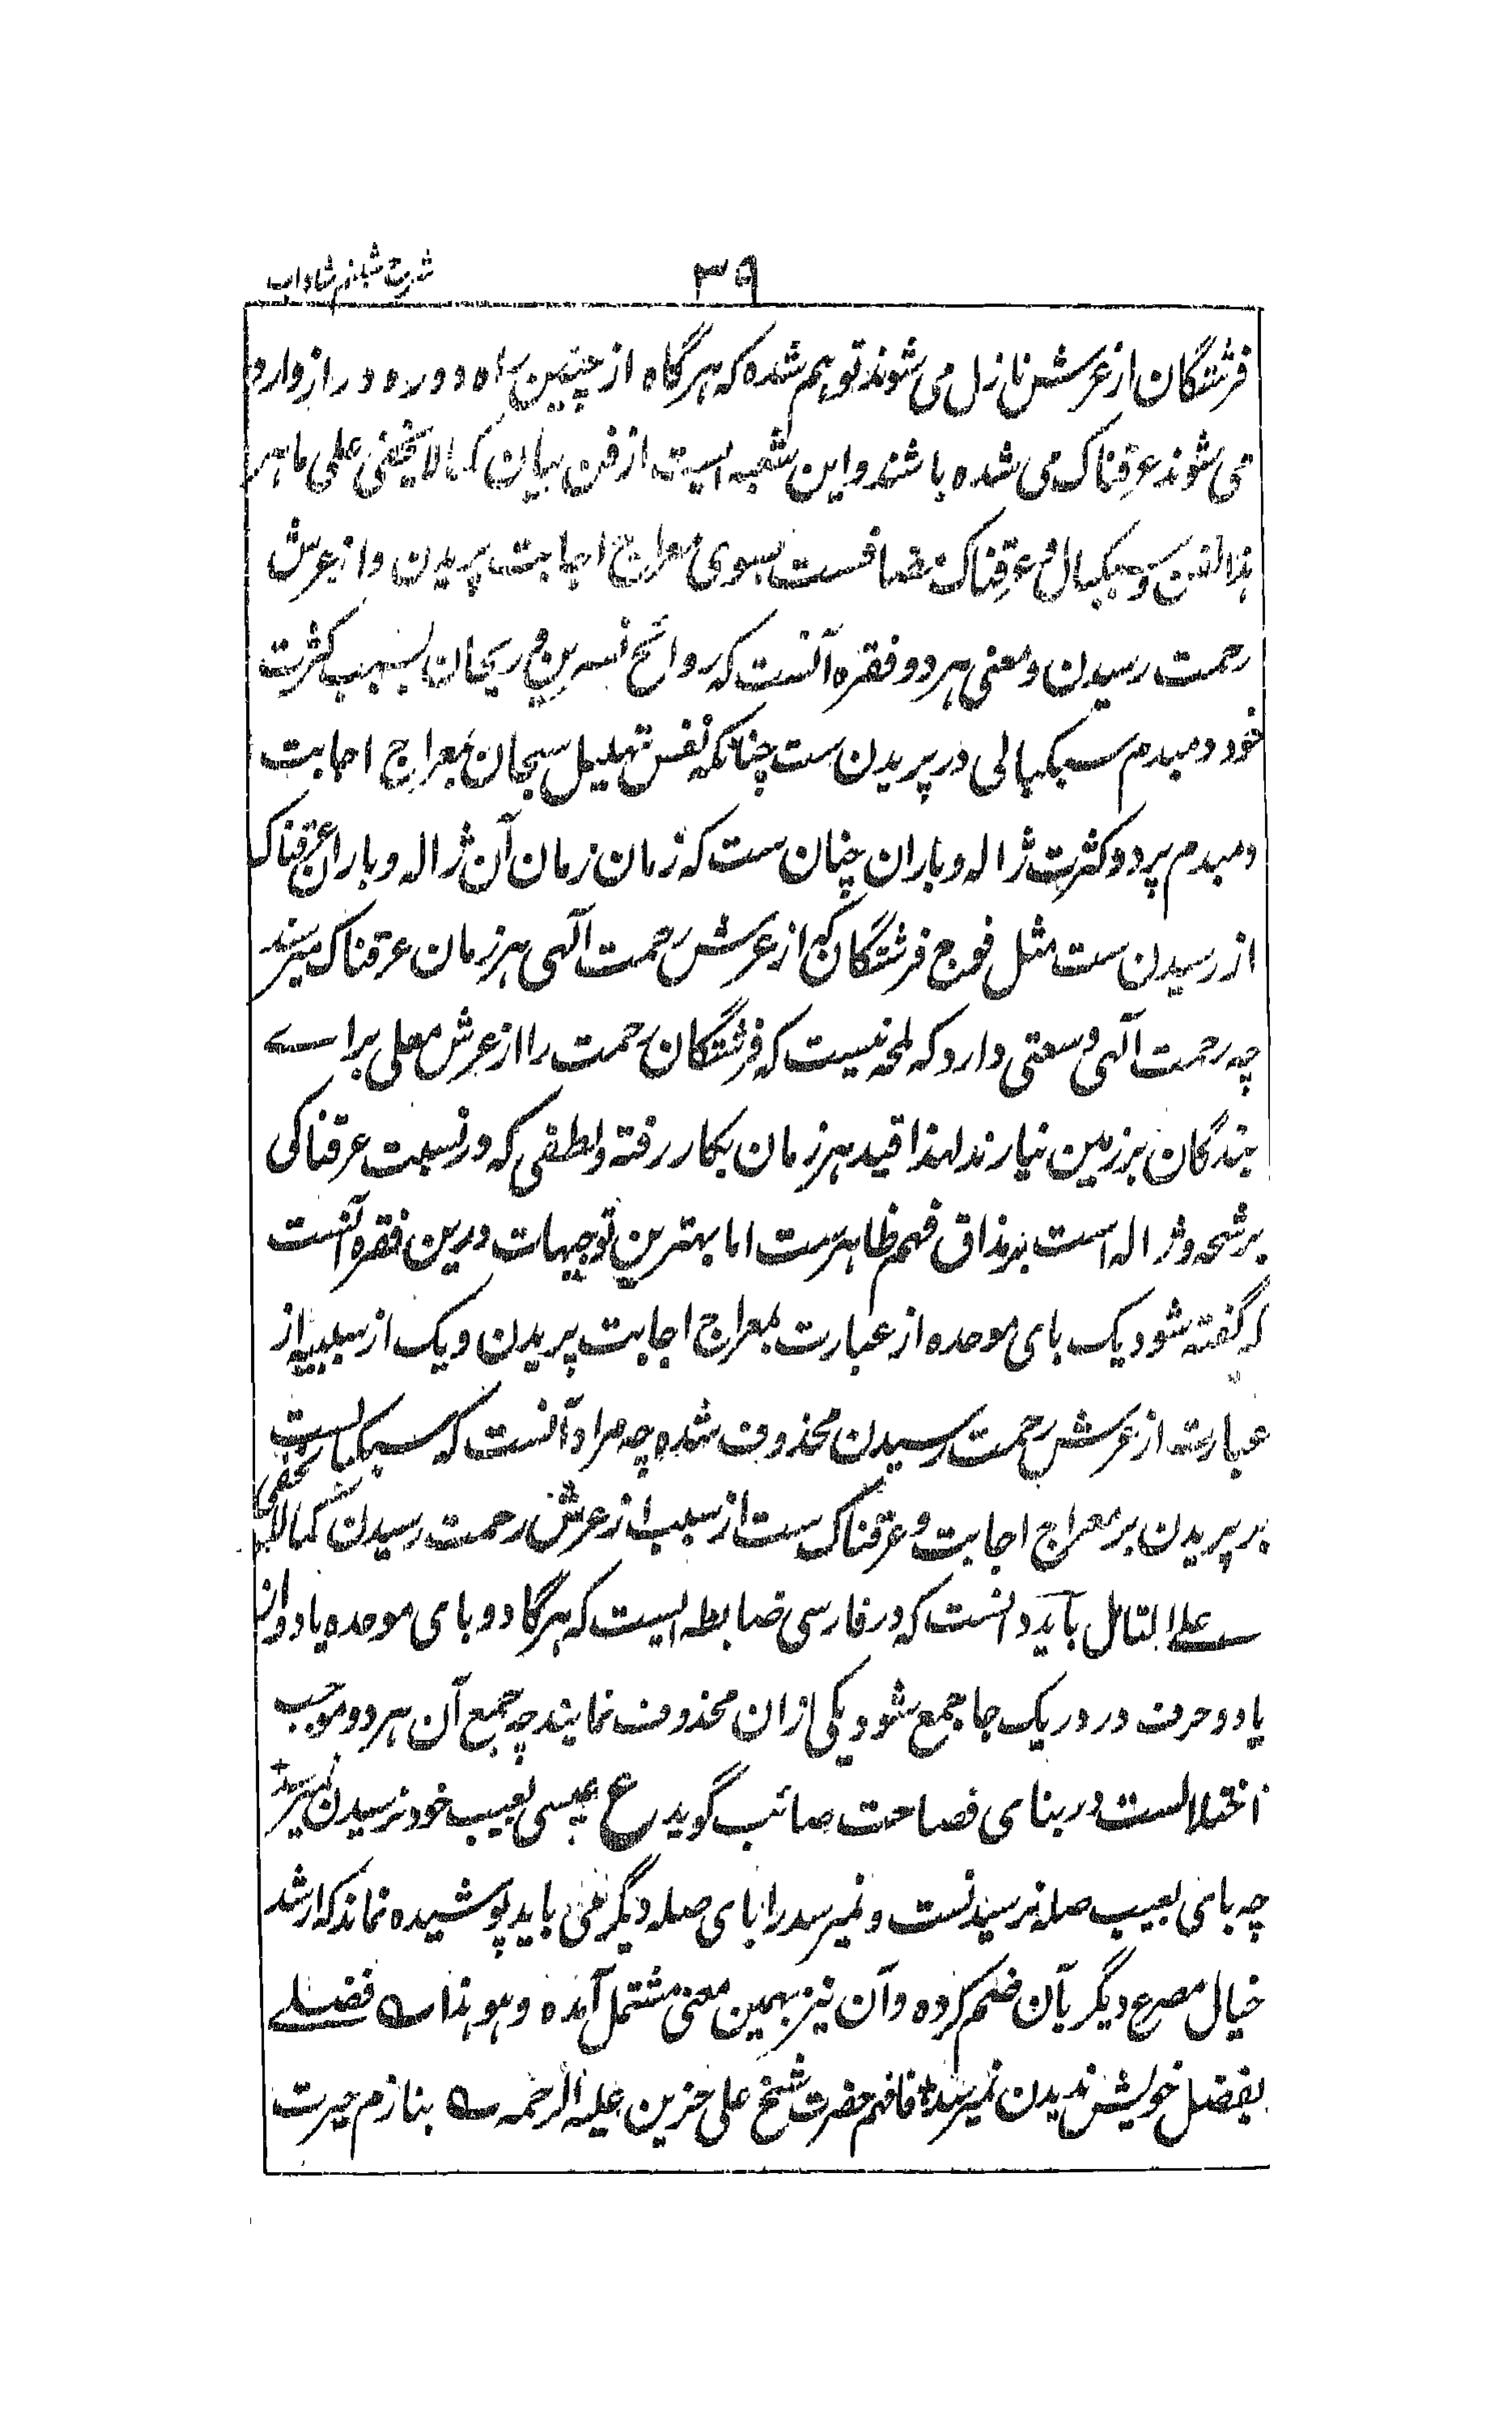 ۳۹
شرح شبنم شاداب
فرشتگان از عرش نازل می شوند توہم شده که ہرگاه از چنین راه دور ه دراز وارد
می شوند عرقناک می شده باشند و این شعبه ایست از فن بیان کما لا یخفی علی ماہر
ہذا الفن و سبکبال و عرقناک مضافست بسوی معراج اجابت پریدن و از عرش
رحمت رسیدن و معنی ہر دو فقره آنست که روائح نسرین و ریحان بسبب کثرت
خود دمبدم سبکبالی در پریدن ست چنانکه نفس تہلیل سبحان بمعراج اجابت
دمبدم پرد و کثرت ژاله و باران چنان ست که زمان زمان آن ژاله و باران عرقناک
از رسیدن ست مثل فوج فرشتگان که از عرش رحمت آلہی ہر زمان عرقناک میرسند
چه رحمت آلہی وسعتی دارد که لمحه نیست که فرشتگان رحمت را از عرش معلی برای
بندگان بر زمین نیارند لہذا قید ہر زمان بکار رفته و لطفی که در نسبت عرقناکی
برشحه و ژاله است بر مذاق فہم ظاہرست اما بہترین توجیہات درین فقره آنست
که گفته شود یک بای موحده از عبارت بمعراج اجابت پریدن و یک از سببیه از
عبارت از عرش رحمت رسیدن محذوف شده چه مراد آنست که سبکبالست
بر پریدن بر معراج اجابت و عرقناک ست از سبب از عرش رحمت رسیدن کما لا یخفی
علے التامل باید دانست که در فارسی ضابطه ایست که ہرگاه دو بای موحده یا دو از
یا دو حرف در در یک جا جمع شود یکی ازان محذوف نمایند چه جمع آن ہر دو موجب
اختلالست در بنای فصاحت صائب گوید ع بعیسی بعیب خود نرسیدن نمیرسد
چه بای بعیب صله نرسیدنست و نمیرسد را بای صله دیگر می باید پوشیده نماند که ارشد
خیال مصرع دیگر بآن ضم کرده و آن نیز بہمین معنی مشتمل آمده و ہو ہذا فضلے
بفضل خویش ندیدن نمیرسد فافہم حضرت شیخ علی حزین علیه الرحمه بنازم حیرت